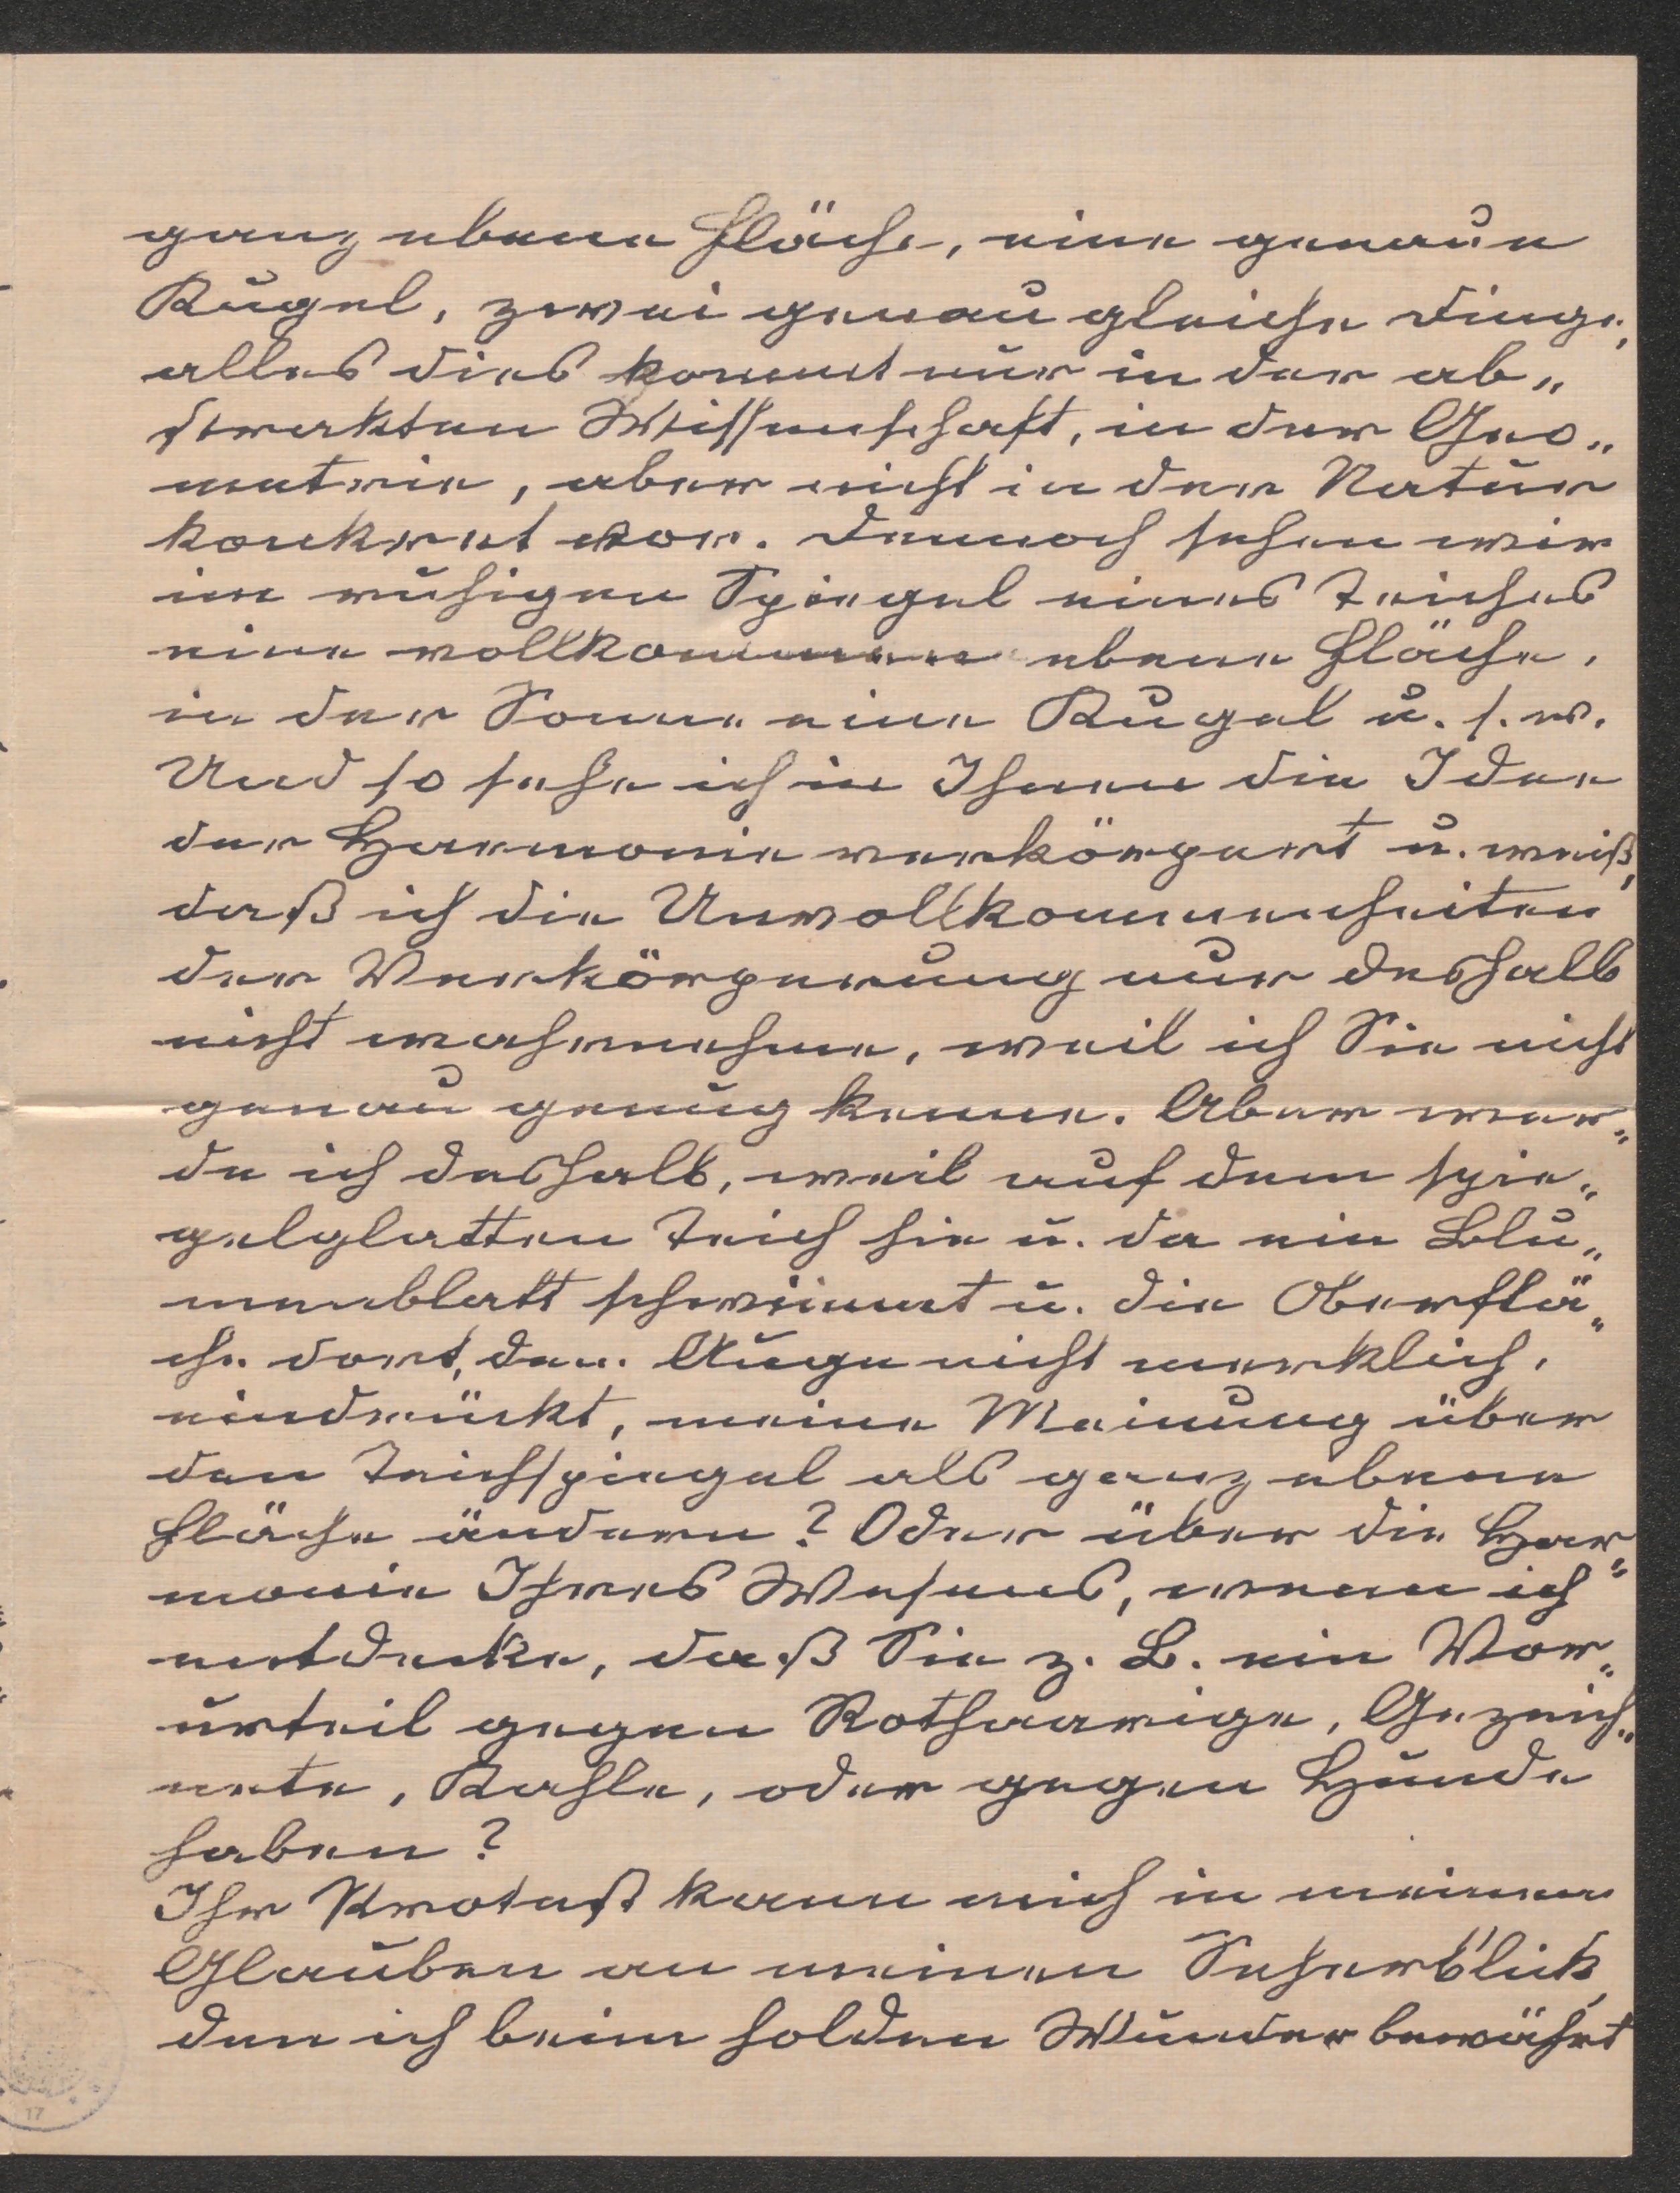 ganz ebene Fläche, eine genaue
Kugel, zwei genau gleiche Dinge,
alles dies kommt nur in der ab„
strakten Wissenschaft, in der Geo„
metrie, aber nicht in der Natur
konkret vor. Dennoch sehen wir
im ruhigen Spiegel eines Teiches
eine vollkommen ebene Fläche,
in der Sonne eine Kugel u. s. w.
Und so sehe ich in Ihnen die Idee
der Harmonie verkörpert u. weiß,
daß ich die Unvollkommenheiten
der Verkörperung nur deshalb
nicht wahrnehme, weil ich Sie nicht
genau genug kenne. Aber wer„
de ich deshalb, weil auf dem spie„
gelglatten Teich hie u. da ein Blu„
menblatt schwimmt u. die Oberflä„
che dort, dem Auge nicht merklich,
eindrückt, meine Meinung über
den Teichspiegel als ganz ebene
Fläche ändern? Oder über die Har„
monie Ihres Wesens, wenn ich
entdecke, daß Sie z. B. ein Vor„
urteil gegen Rothaarige, Gezeich„
nete, Kahle, oder gegen Hunde
haben?
Ihr Protest kann mich in meinem
Glauben an meinen Seherblick,
den ich beim holden Wunder bewährt
17